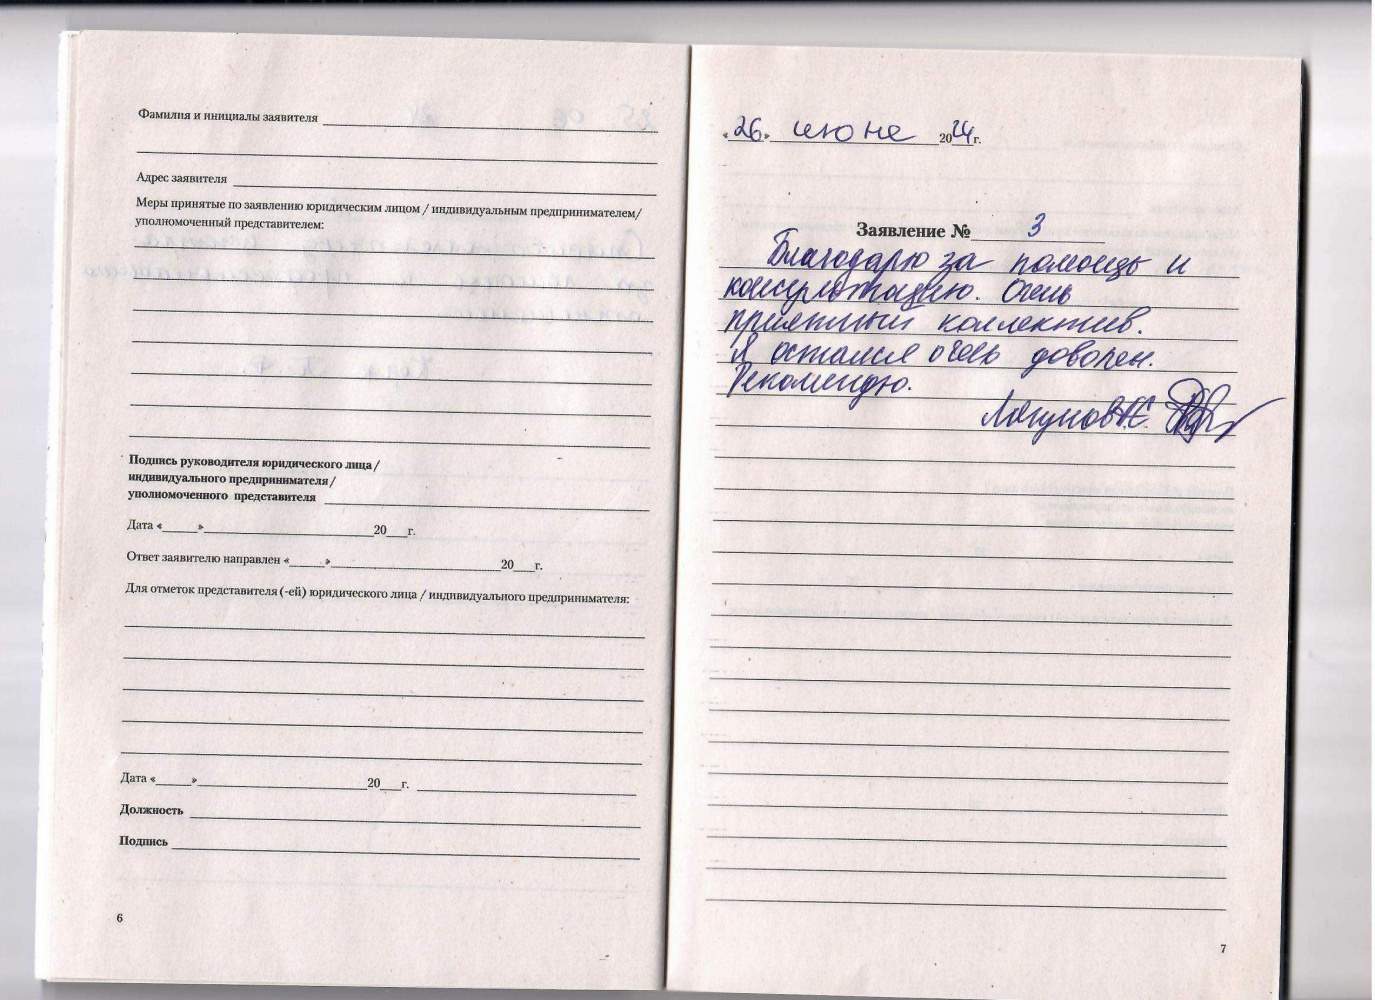 Фамилия и инициалы заявителя
Адрес заявителя
Меры принятые по заявлению юридическим лицом / индивидуальным предпринимателем/
уполномоченный представителем:
Подпись руководителя юридического лица /
индивидуального предпринимателя /
уполномоченного представителя
Дата «____»____________20___г.
Ответ заявителю направлен «____»____________20___г.
Для отметок представителя (-ей) юридического лица / индивидуального предпринимателя:
Дата «____»____________20___г.
Должность
Подпись
6
«26» июне 2024г.
Заявление № 3
Благодарю за помощь и
консультацию. Очень
приятный коллектив.
Я остался очень доволен.
Рекомендую.
7